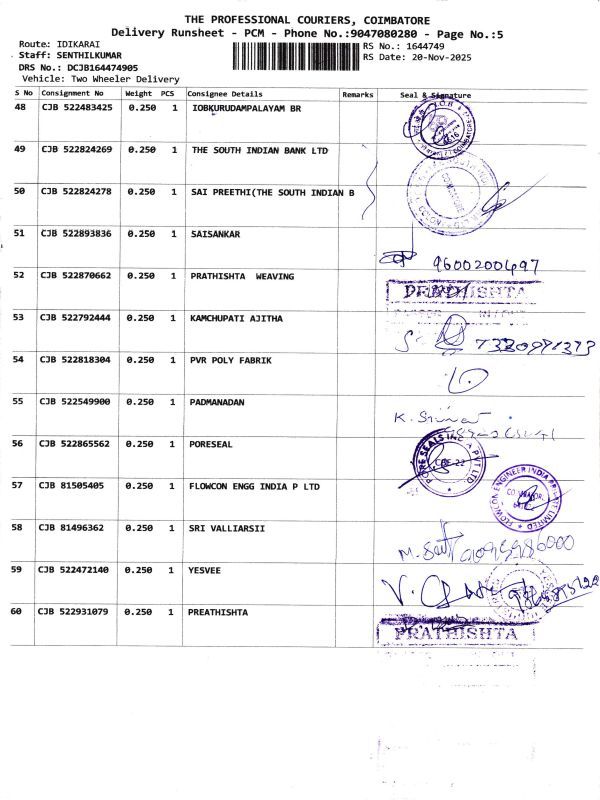 THE PROFESSIONAL COURIERS, COIMBATORE
Delivery Runsheet - PCM - Phone No.:9047080280 - Page No.:5
Route: IDIKARAI
RS No.: 1644749
Staff: SENTHILKUMAR
RS Date: 20-Nov-2025
DRS No.: DCJB164474905
Vehicle: Two Wheeler Delivery
S No Consignment No Weight PCS Consignee Details Remarks Seal & Signature
48 CJB 522483425 0.250 1 IOBKURUDAMPALAYAM BR
49 CJB 522824269 0.250 1 THE SOUTH INDIAN BANK LTD
50 CJB 522824278 0.250 1 SAI PREETHI(THE SOUTH INDIAN B
51 CJB 522893836 0.250 1 SAISANKAR
9600200497
52 CJB 522870662 0.250 1 PRATHISHTA WEAVING
53 CJB 522792444 0.250 1 KAMCHUPATI AJITHA
54 CJB 522818304 0.250 1 PVR POLY FABRIK
55 CJB 522549900 0.250 1 PADMANADAN
56 CJB 522865562 0.250 1 PORESEAL
PORE SEALS INDIA PVT LTD.
CBE-22
57 CJB 81505405 0.250 1 FLOWCON ENGG INDIA P LTD
FLOWCON ENGINEER INDIA PRIVATE LIMITED
58 CJB 81496362 0.250 1 SRI VALLIARSII
59 CJB 522472140 0.250 1 YESVEE
60 CJB 522931079 0.250 1 PREATHISHTA
PRATHISHTA